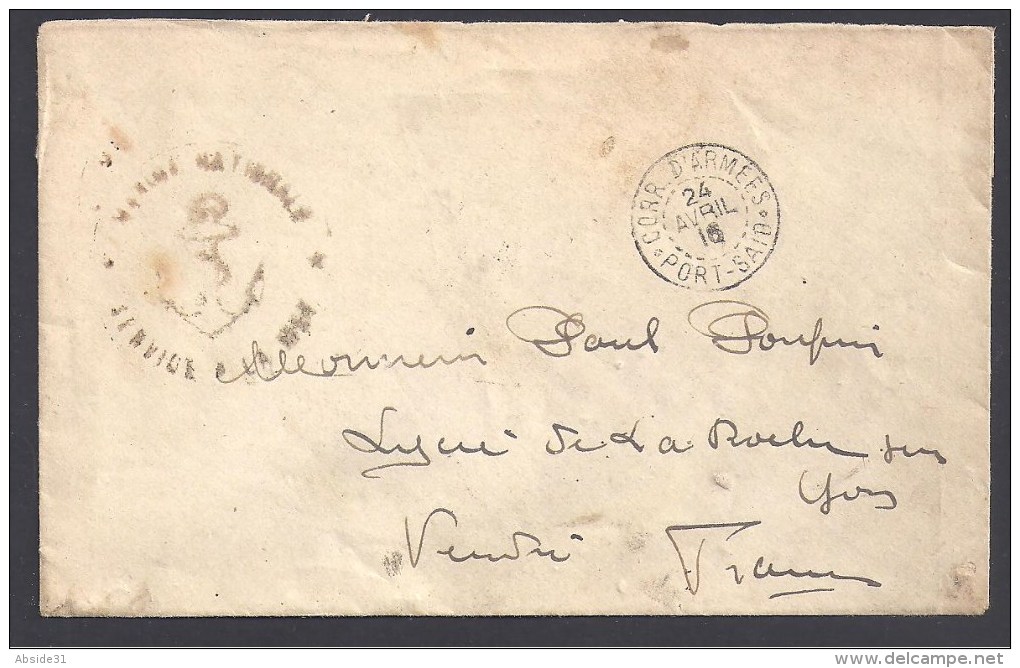 MARINE NATIONALE
SERVICE A LA MER
CORR. D'ARMÉES
24
AVRIL
16
PORT-SAID
Monsieur Paul
Lycée de La Roche sur
Yon
Vendée France
Abside31
www.delcampe.net